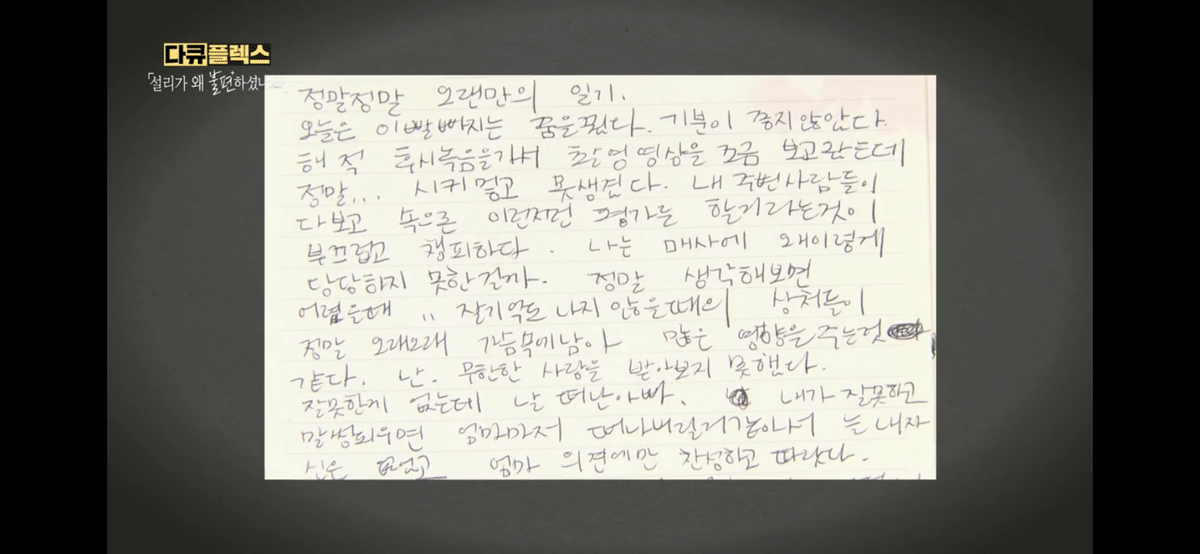 다큐플렉스
「설리가 왜 불편하셨나
정말정말 오랜만의 일기.
오늘은 이빨빠지는 꿈을꿨다. 기분이 좋지않았다.
해적 후시녹음을가서 촬영영상을 조금 보고왔는데
정말... 시커멓고 못생겼다. 내 주변사람들이
다보고 속으론 이런저런 평가를 할거라는것이
부끄럽고 챙피하다. 나는 매사에 왜이렇게
당당하지 못한걸까. 정말 생각해보면
어렸을때 .. 잘기억도 나지 않을때의 상처들이
정말 오래오래 가슴속에남아 많은 영향을 주는것
같다. 난. 무한한 사랑을 받아보지 못했다.
잘못한게 없는데 날 떠난아빠. 내가 잘못하고
말썽피우면 엄마마저 떠나버릴거같아서 늘 내자
신은 없었고 엄마 의견에만 찬성하고 따랐다.